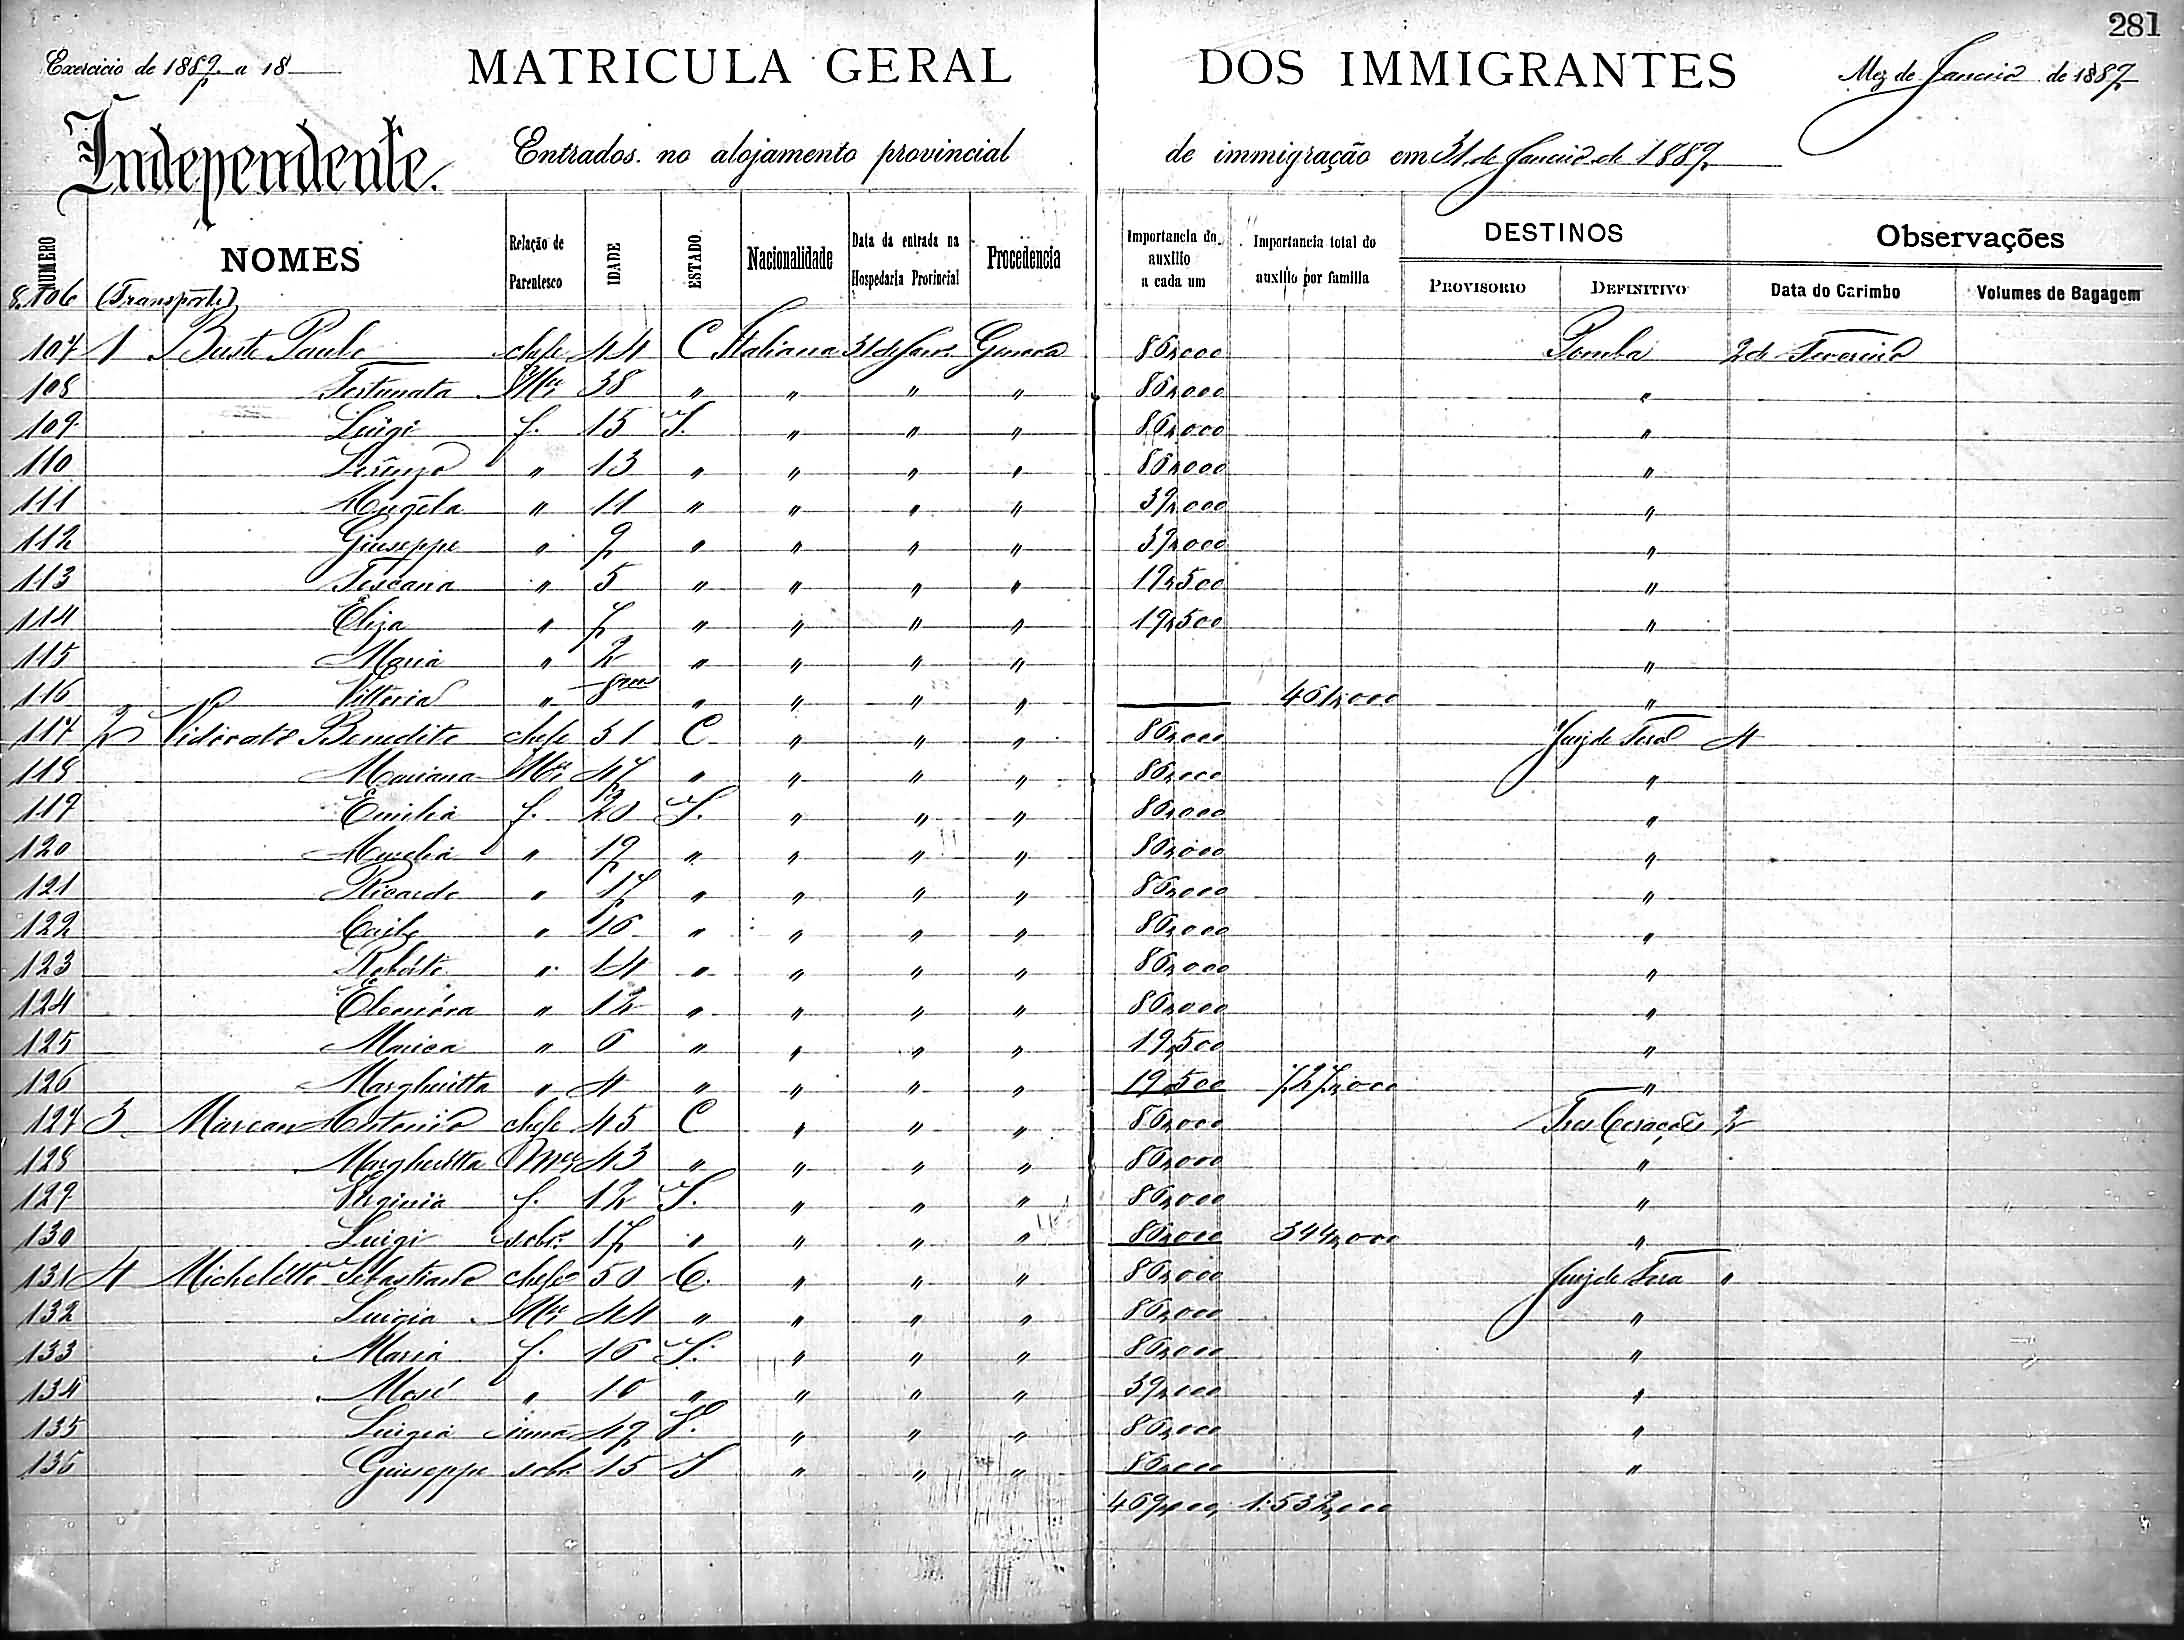 281
Exercicio de 1889 a 18
MATRICULA GERAL DOS IMMIGRANTES
Mez de Janeiro de 1889
Independente.
Entrados no alojamento provincial de immigração em 31 de Janeiro de 1889
NUMERO NOMES Relação de Parentesco IDADE ESTADO Nacionalidade Data da entrada na Hospedaria Provincial Procedencia Importancia do auxilio a cada um Importancia total do auxilio por familia DESTINOS PROVISORIO DEFINITIVO Observações Data do Carimbo Volumes de Bagagem
8.106 (Transporte)
107 1 Paulo chefe 44 C Italiana 31 de Janro Genova 86,000 Pomba 2 de Fevereiro
108 Fortunata Mer 38 " " " " 86,000 "
109 Luigi f. 15 S. " " " 86,000 "
110 Lorenzo " 13 " " " " 86,000 "
111 Angela " 11 " " " " 39,000 "
112 Giuseppe " 9 " " " " 39,000 "
113 Toscana " 5 " " " " 19,500 "
114 Eliza " 7 " " " " 19,500 "
115 Maria " 2 " " " " "
116 Vittoria " " " " " 461,000 "
117 2 Benedito chefe 51 C " " " 86,000 Juiz de Fora 4
118 Mariana Mer 47 " " " " 86,000 "
119 Emilia f. 20 S. " " " 86,000 "
120 " 19 " " " " 86,000 "
121 Ricardo " 17 " " " " 86,000 "
122 " 16 " " " " 86,000 "
123 Roberto " 14 " " " " 86,000 "
124 Eleonóra " 12 " " " " 86,000 "
125 " 6 " " " " 19,500 "
126 Margheritta " 4 " " " " 19,500 727,000 "
127 3 Marcan Antonio chefe 45 C " " " 86,000 Tres Corações 2
128 Margheritta Mer 43 " " " " 86,000 "
129 Virginia f. 12 S. " " " 86,000 "
130 Luigi sobr. 17 " " " " 86,000 344,000 "
131 4 Micheletto Sebastiano chefe 50 C. " " " 86,000 Juiz de Fora "
132 Luigia Mer 44 " " " " 86,000 "
133 Maria f. 16 S. " " " 86,000 "
134 Mosé " 10 " " " " 39,000 "
135 Luigia irmã 49 S. " " " 86,000 "
136 Giuseppe sobr. 15 S " " " 86,000 "
469,000 1:532,000